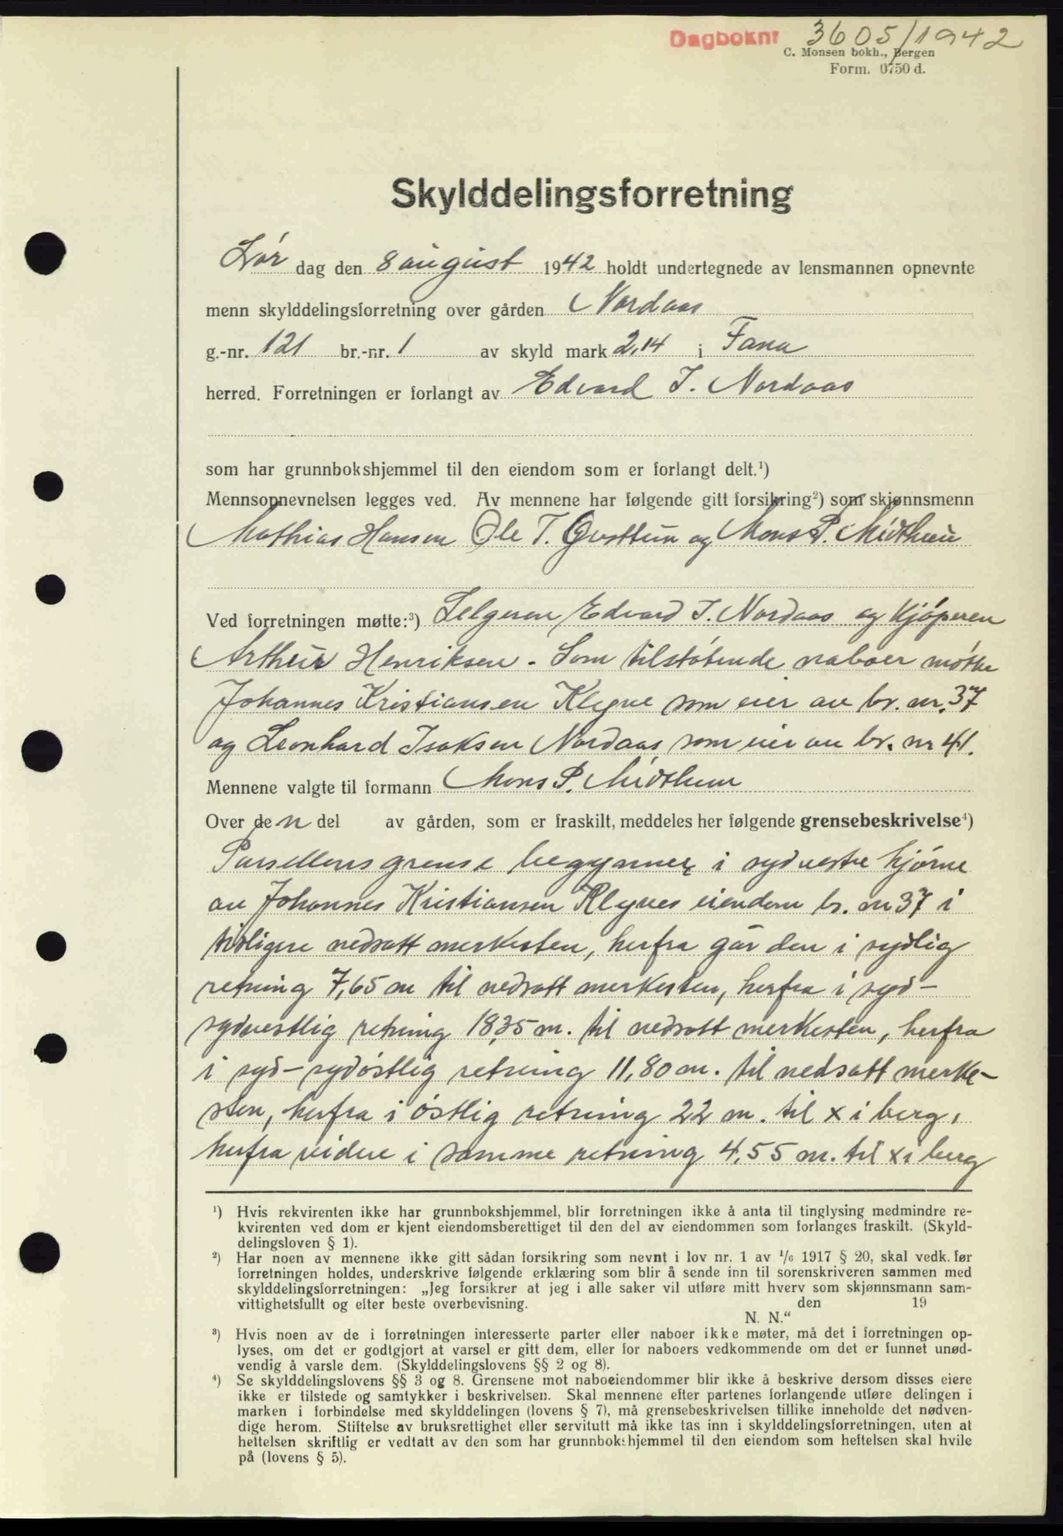 Dagboknr 3605/1942
C. Monsen bokh., Bergen
Form. 0750 d.
Skylddelingsforretning
Lør dag den 8 august 1942 holdt undertegnede av lensmannen opnevnte
menn skylddelingsforretning over gården Nordaas
g.-nr. 121 br.-nr. 1 av skyld mark 2,14 i Fana
herred. Forretningen er forlangt av Edvard I. Nordaas
som har grunnbokshjemmel til den eiendom som er forlangt delt.¹)
Mennsopnevnelsen legges ved. Av mennene har følgende gitt forsikring²) som skjønnsmenn
Mathias Hansen Ole T. Grøttun og Mons P. Midthun
Ved forretningen møtte:³) Selgeren Edvard I. Nordaas og kjøperen
Arthur Henriksen. Som tilstøtende naboer møtte
Johannes Kristiansen Kleyve som eier av br. nr. 37
og Leonhard Isaksen Nordaas som eier av br. nr 41.
Mennene valgte til formann Mons P. Midthun
Over den del av gården, som er fraskilt, meddeles her følgende grensebeskrivelse⁴)
Parsellens grense begynner i sydvestre hjørne
av Johannes Kristiansen Kleyves eiendom br. nr 37 i
tidligere nedsatt merkesten, herfra går den i sydlig
retning 7,65 m til nedsatt merkesten, herfra i syd-
sydvestlig retning 18,35 m. til nedsatt merkesten, herfra
i syd-sydøstlig retning 11,80 m. til nedsatt merke-
sten, herfra i østlig retning 22 m. til x i berg,
herfra videre i samme retning 4,55 m. til x i berg
¹) Hvis rekvirenten ikke har grunnbokshjemmel, blir forretningen ikke å anta til tinglysing medmindre re-
kvirenten ved dom er kjent eiendomsberettiget til den del av eiendommen som forlanges fraskilt. (Skyld-
delingsloven § 1).
²) Har noen av mennene ikke gitt sådan forsikring som nevnt i lov nr. 1 av ¹/₆ 1917 § 20, skal vedk. før
forretningen holdes, underskrive følgende erklæring som blir å sende inn til sorenskriveren sammen med
skylddelingsforretningen: „Jeg forsikrer at jeg i alle saker vil utføre mitt hverv som skjønnsmann sam-
vittighetsfullt og efter beste overbevisning. den 19
N. N.“
³) Hvis noen av de i forretningen interesserte parter eller naboer ikke møter, må det i forretningen op-
lyses, om det er godtgjort at varsel er gitt dem, eller for naboers vedkommende om det er funnet unød-
vendig å varsle dem. (Skylddelingslovens §§ 2 og 8).
⁴) Se skylddelingslovens §§ 3 og 8. Grensene mot naboeiendommer blir ikke å beskrive dersom disses eiere
ikke er tilstede og samtykker i beskrivelsen. Skal mennene efter partenes forlangende utføre delingen i
marken i forbindelse med skylddelingen (lovens § 7), må grensebeskrivelsen tillike inneholde det nødven-
dige herom. Stiftelse av bruksrettighet eller servitutt må ikke tas inn i skylddelingsforretningen, uten at
heftelsen skriftlig er vedtatt av den som har grunnbokshjemmel til den eiendom som heftelsen skal hvile
på (lovens § 5).